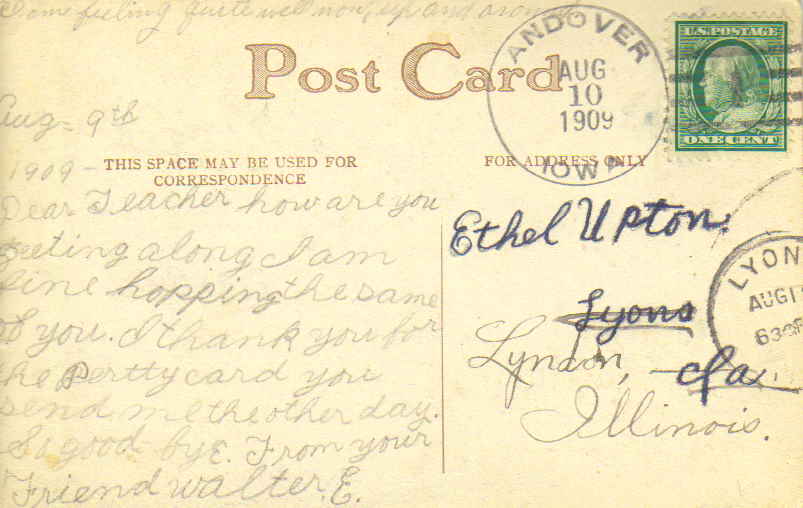 Some feeling quite well now, up and around
Post Card
ANDOVER
AUG
10
1909
IOWA
U.S. POSTAGE
ONE CENT
Aug - 9th
1909 -
THIS SPACE MAY BE USED FOR
CORRESPONDENCE
FOR ADDRESS ONLY
Dear Teacher how are you
geeting along I am
fine hopping the same
of you. I thank you for
the perttycard you
send me the other day.
So good bye. From your
Friend walter. E.
Ethel Upton.
Lyons
Lyndon, Ia.
Illinois.
LYON
AUG 1
630P